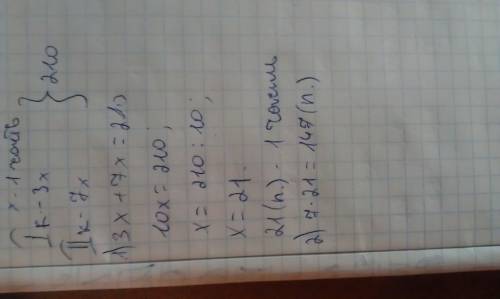 x - 1 часть
I к - 3x
II к - 7x } 210
1) 3x + 7x = 210
10x = 210;
x = 210 : 10;
x = 21.
21 (п.) - 1 часть
2) 7 · 21 = 147 (п.)